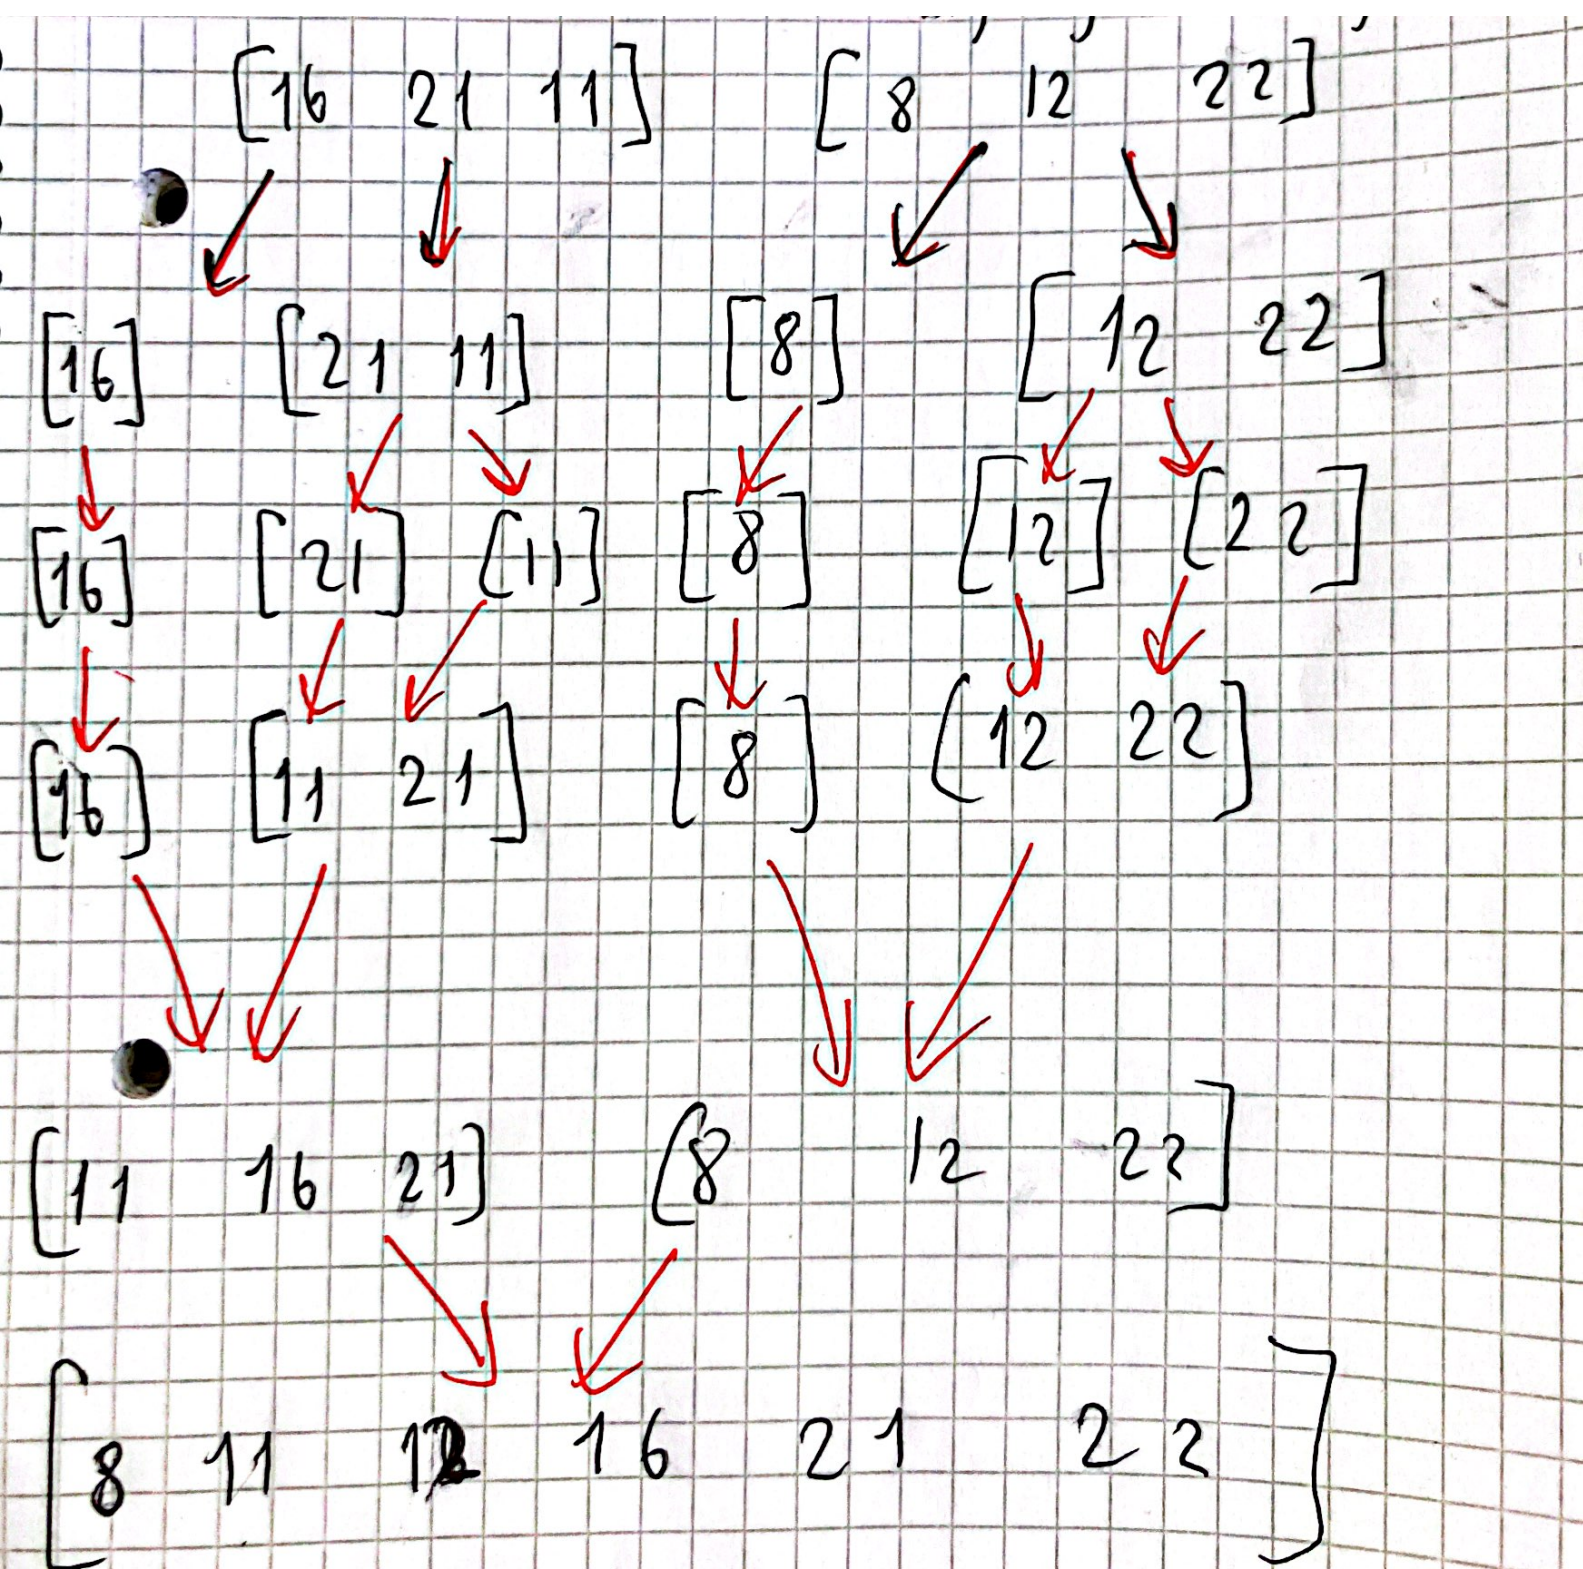 [16 21 11] [8 12 22]
[16] [21 11] [8] [12 22]
[16] [21] [11] [8] [12] [22]
[16] [11 21] [8] (12 22]
[11 16 21] (8 12 22]
[8 11 12 16 21 22]